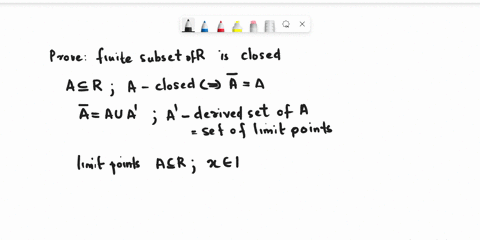 Prove: finite subset of R is closed
A ⊆ R ; A - closed ⟺ A̅ = A
A̅ = A ∪ A' ; A' - derived set of A
= set of limit points
limit points A ⊆ R ; x ∈ l